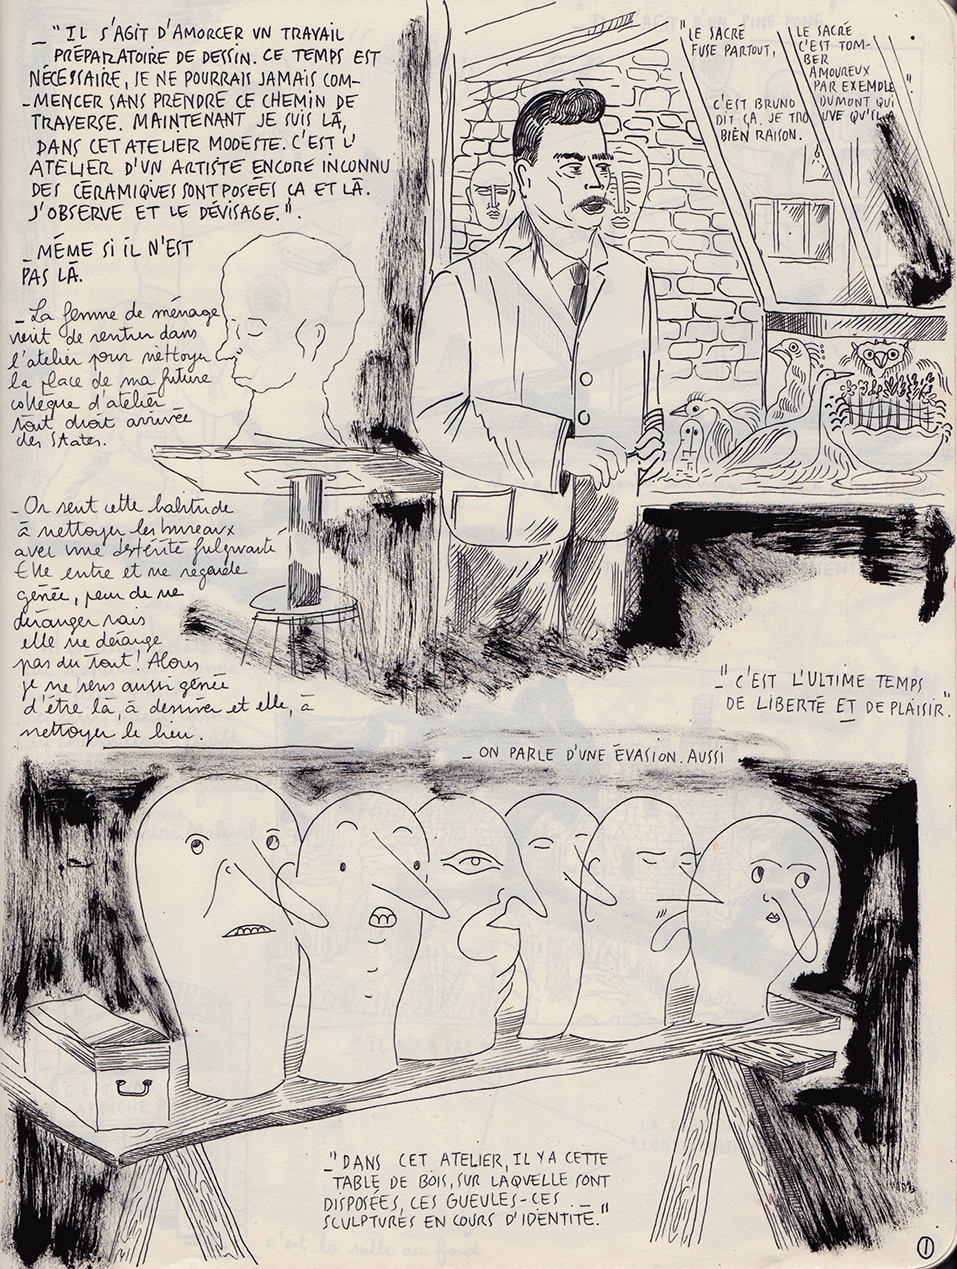 _ "IL S'AGIT D'AMORCER UN TRAVAIL
PRÉPARATOIRE DE DESSIN. CE TEMPS EST
NÉCESSAIRE, JE NE POURRAIS JAMAIS COM-
-MENCER SANS PRENDRE CE CHEMIN DE
TRAVERSE. MAINTENANT JE SUIS LÀ,
DANS CET ATELIER MODESTE. C'EST L'
ATELIER D'UN ARTISTE ENCORE INCONNU
DES CÉRAMIQUES SONT POSÉES ÇA ET LÀ.
J'OBSERVE ET LE DÉVISAGE.".
_ MÊME SI IL N'EST
PAS LÀ.
_ La femme de ménage
vient de rentrer dans
l'atelier pour nettoyer
la place de ma future
collègue d'atelier
tout droit arrivée
des States.
_ On sent cette habitude
à nettoyer les bureaux
avec une destérité fulgurante
Elle entre et me regarde
gênée, peur de me
déranger mais
elle ne dérange
pas du tout! Alors
je me sens aussi gênée
d'être là, à dessiner et elle, à
nettoyer le lieu.
"LE SACRÉ
FUSE PARTOUT,
LE SACRÉ
C'EST TOM-
BER
AMOUREUX
PAR EXEMPLE"
C'EST BRUNO DUMONT QUI
DIT ÇA. JE TROUVE QU'IL A
BIEN RAISON.
_" C'EST L'ULTIME TEMPS
DE LIBERTÉ ET DE PLAISIR."
_ ON PARLE D'UNE ÉVASION. AUSSI
_"DANS CET ATELIER, IL Y A CETTE
TABLE DE BOIS, SUR LAQUELLE SONT
DISPOSÉES, CES GUEULES-CES
SCULPTURES EN COURS D'IDENTITÉ."
1